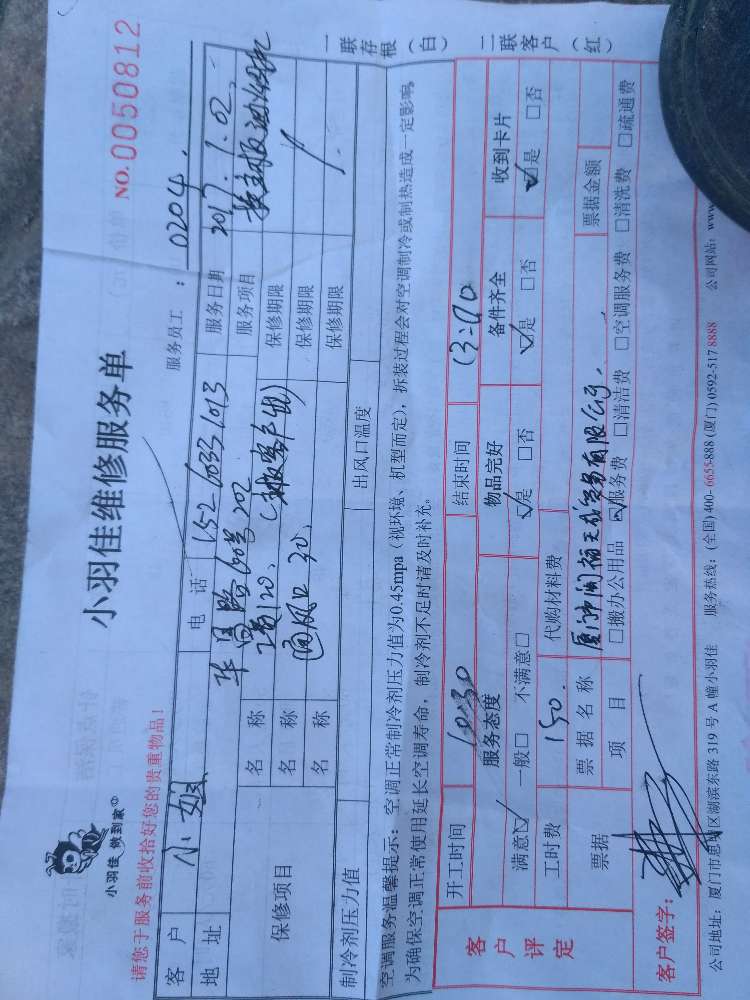 小羽佳 做到家
小羽佳维修服务单
NO.0050812
请您于服务前收拾好您的贵重物品!
服务员工: 0204.
客户 小姐 电话 15260331013 服务日期 2017.1.02.
地址 202 服务项目
保修项目 名称 120、 保修期限
名称 通风口 30、 保修期限
名称 保修期限
制冷剂压力值 出风口温度
一联存根(白) 二联客户(红)
空调服务温馨提示: 空调正常制冷剂压力值为0.45mpa(视环境、机型而定), 拆装过程会对空调制冷或制热造成一定影响,
为确保空调正常使用延长空调寿命, 制冷剂不足时请及时补充。
客户评定
开工时间 10:30 结束时间
服务态度 物品完好 备件齐全 收到卡片
满意☑ 一般□ 不满意□ ☑是 □否 ☑是 □否 ☑是 □否
工时费 150. 代购材料费
票据 票据名称 厦门市闽福天成贸易有限公司. 票据金额
项目 □搬办公用品 ☑服务费 □清洁费 □空调服务费 □清洗费 □疏通费
客户签字:
公司地址: 厦门市思明区湖滨东路 319 号 A 幢小羽佳 服务热线: (全国) 400-6655-888 (厦门) 0592-517 8888 公司网站: www